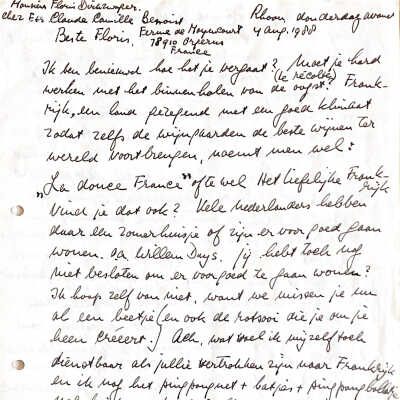 Monsieur Floris Direzwager.
chez Ets Claude Camille Benoist
Ferme de Moyencourt
78910 Orgerus
France
Rhoon, donderdagavond
4 Aug. 1988
Beste Floris,
Ik ben benieuwd hoe het je vergaat? Moet je hard
werken met het binnenhalen van de oogst? (la récolte) Frank-
rijk, een land gezegend met een goed klimaat
zodat zelfs de wijngaarden de beste wijnen ter
wereld voortbrengen, noemt men wel:
"La douce France" ofte wel Het liefelijke Frank-
rijk
Vind je dat ook? Vele nederlanders hebben
daar een zomerhuisje of zijn er voor goed gaan
wonen. oa Willem Duys. Jij hebt toch nog
niet besloten om er voorgoed te gaan wonen?
Ik hoop zelf van niet, want we missen je nu
al een beetje (en ook de rotzooi die je om je
heen creëert.) Ach, wat voel ik mijzelf toch
dienstbaar als jullie vertrokken zijn naar Frankrijk
en ik nog het pingpongnet + batjes + pingpongballetje